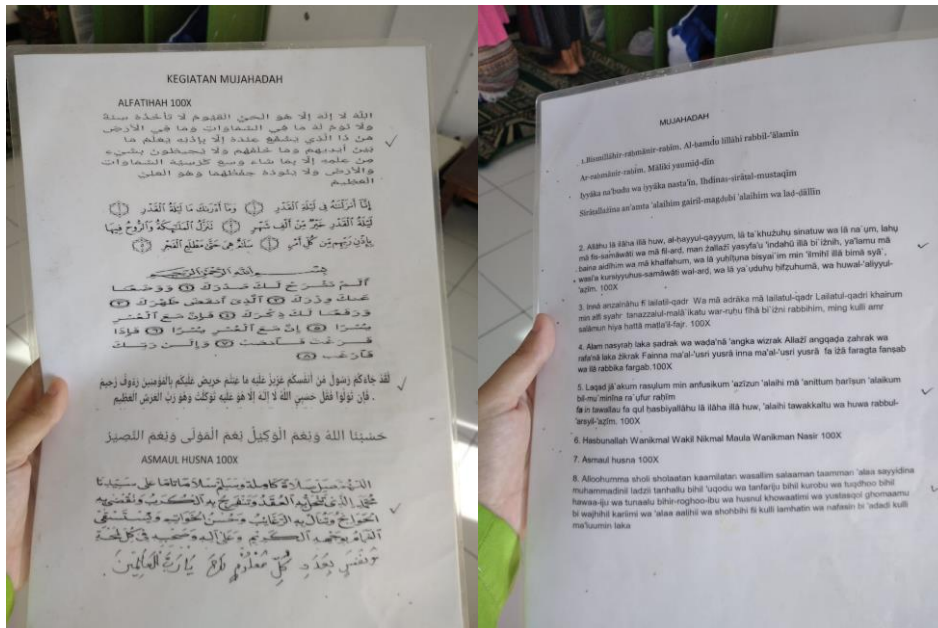 KEGIATAN MUJAHADAH
ALFATIHAH 100X
الله لا إله إلا هو الحي القيوم لا تأخذه سنة
ولا نوم له ما في السماوات وما في الأرض
من ذا الذي يشفع عنده إلا بإذنه يعلم ما
بين أيديهم وما خلفهم ولا يحيطون بشيء
من علمه إلا بما شاء وسع كرسيه السماوات
والأرض ولا يئوده حفظهما وهو العلي
العظيم
إِنَّا أَنزَلْنَاهُ فِي لَيْلَةِ الْقَدْرِ ١ وَمَا أَدْرَاكَ مَا لَيْلَةُ الْقَدْرِ ٢
لَيْلَةُ الْقَدْرِ خَيْرٌ مِّنْ أَلْفِ شَهْرٍ ٣ تَنَزَّلُ الْمَلَائِكَةُ وَالرُّوحُ فِيهَا
بِإِذْنِ رَبِّهِم مِّن كُلِّ أَمْرٍ ٤ سَلَامٌ هِيَ حَتَّىٰ مَطْلَعِ الْفَجْرِ ٥
بِسْمِ اللَّهِ الرَّحْمَٰنِ الرَّحِيمِ
أَلَمْ نَشْرَحْ لَكَ صَدْرَكَ ١ وَوَضَعْنَا
عَنكَ وِزْرَكَ ٢ الَّذِي أَنقَضَ ظَهْرَكَ ٣
وَرَفَعْنَا لَكَ ذِكْرَكَ ٤ فَإِنَّ مَعَ الْعُسْرِ
يُسْرًا ٥ إِنَّ مَعَ الْعُسْرِ يُسْرًا ٦ فَإِذَا
فَرَغْتَ فَانصَبْ ٧ وَإِلَىٰ رَبِّكَ
فَارْغَب ٨
لَقَدْ جَاءَكُمْ رَسُولٌ مِّنْ أَنفُسِكُمْ عَزِيزٌ عَلَيْهِ مَا عَنِتُّمْ حَرِيصٌ عَلَيْكُم بِالْمُؤْمِنِينَ رَءُوفٌ رَّحِيمٌ
. فَإِن تَوَلَّوْا فَقُلْ حَسْبِيَ اللَّهُ لَا إِلَٰهَ إِلَّا هُوَ عَلَيْهِ تَوَكَّلْتُ وَهُوَ رَبُّ الْعَرْشِ الْعَظِيمِ
حَسْبُنَا اللهُ وَنِعْمَ الْوَكِيْلُ نِعْمَ الْمَوْلَى وَنِعْمَ النَّصِيْرُ
ASMAUL HUSNA 100X
اللهم صل صلاة كاملة وسلم سلاما تاما على سيدنا
محمد الذي تنحل به العقد وتنفرج به الكرب وتقضى به
الحوائج وتنال به الرغائب وحسن الخواتم ويستسقى
الغمام بوجهه الكريم وعلى آله وصحبه في كل لمحة
ونفس بعدد كل معلوم لك يا رب العالمين
MUJAHADAH
1.Bismillāhir-raḥmānir-raḥīm. Al-ḥamdu lillāhi rabbil-'ālamīn
Ar-raḥmānir-raḥīm. Māliki yaumid-dīn
Iyyāka na'budu wa iyyāka nasta'īn, Ihdinaṣ-ṣirāṭal-mustaqīm
Ṣirāṭallażīna an'amta 'alaihim gairil-magḍụbi 'alaihim wa laḍ-ḍāllīn
2. Allāhu lā ilāha illā huw, al-ḥayyul-qayyụm, lā ta`khużuhụ sinatuw wa lā na`ụm, lahụ
mā fis-samāwāti wa mā fil-arḍ, man żallażī yasyfa'u 'indahū illā bi`iżnih, ya'lamu mā
baina aidīhim wa mā khalfahum, wa lā yuḥīṭụna bisyai`im min 'ilmihī illā bimā syā`,
wasi'a kursiyyuhus-samāwāti wal-arḍ, wa lā ya`ụduhụ ḥifẓuhumā, wa huwal-'aliyyul-
'aẓīm. 100X
3. Innā anzalnāhu fī lailatil-qadr Wa mā adrāka mā lailatul-qadr Lailatul-qadri khairum
min alfi syahr tanazzalul-malā`ikatu war-rụḥu fīhā bi`iżni rabbihim, ming kulli amr
salāmun hiya ḥattā maṭla'il-fajr. 100X
4. Alam nasyraḥ laka ṣadrak wa waḍa'nā 'angka wizrak Allażī angqaḍa ẓahrak wa
rafa'nā laka żikrak Fainna ma'al-'usri yusrā inna ma'al-'usri yusrā fa iżā faragta fanṣab
wa ilā rabbika fargab.100X
5. Laqad jā`akum rasụlum min anfusikum 'azīzun 'alaihi mā 'anittum ḥarīṣun 'alaikum
bil-mu`minīna ra`ụfur raḥīm
fa in tawallau fa qul ḥasbiyallāhu lā ilāha illā huw, 'alaihi tawakkaltu wa huwa rabbul-
'arsyil-'aẓīm. 100X
6. Hasbunallah Wanikmal Wakil Nikmal Maula Wanikman Nasir 100X
7. Asmaul husna 100X
8. Alloohumma sholi sholaatan kaamilatan wasallim salaaman taamman 'alaa sayyidina
muhammadinil ladzii tanhallu bihil 'uqodu wa tanfariju bihil kurobu wa tuqdhoo bihil
hawaa-iju wa tunaalu bihir-roghoo-ibu wa husnul khowaatimi wa yustasqol ghomaamu
bi wajhihil kariimi wa 'alaa aalihii wa shohbihi fii kulli lamhatin wa nafasin bi 'adadi kulli
ma'luumin laka